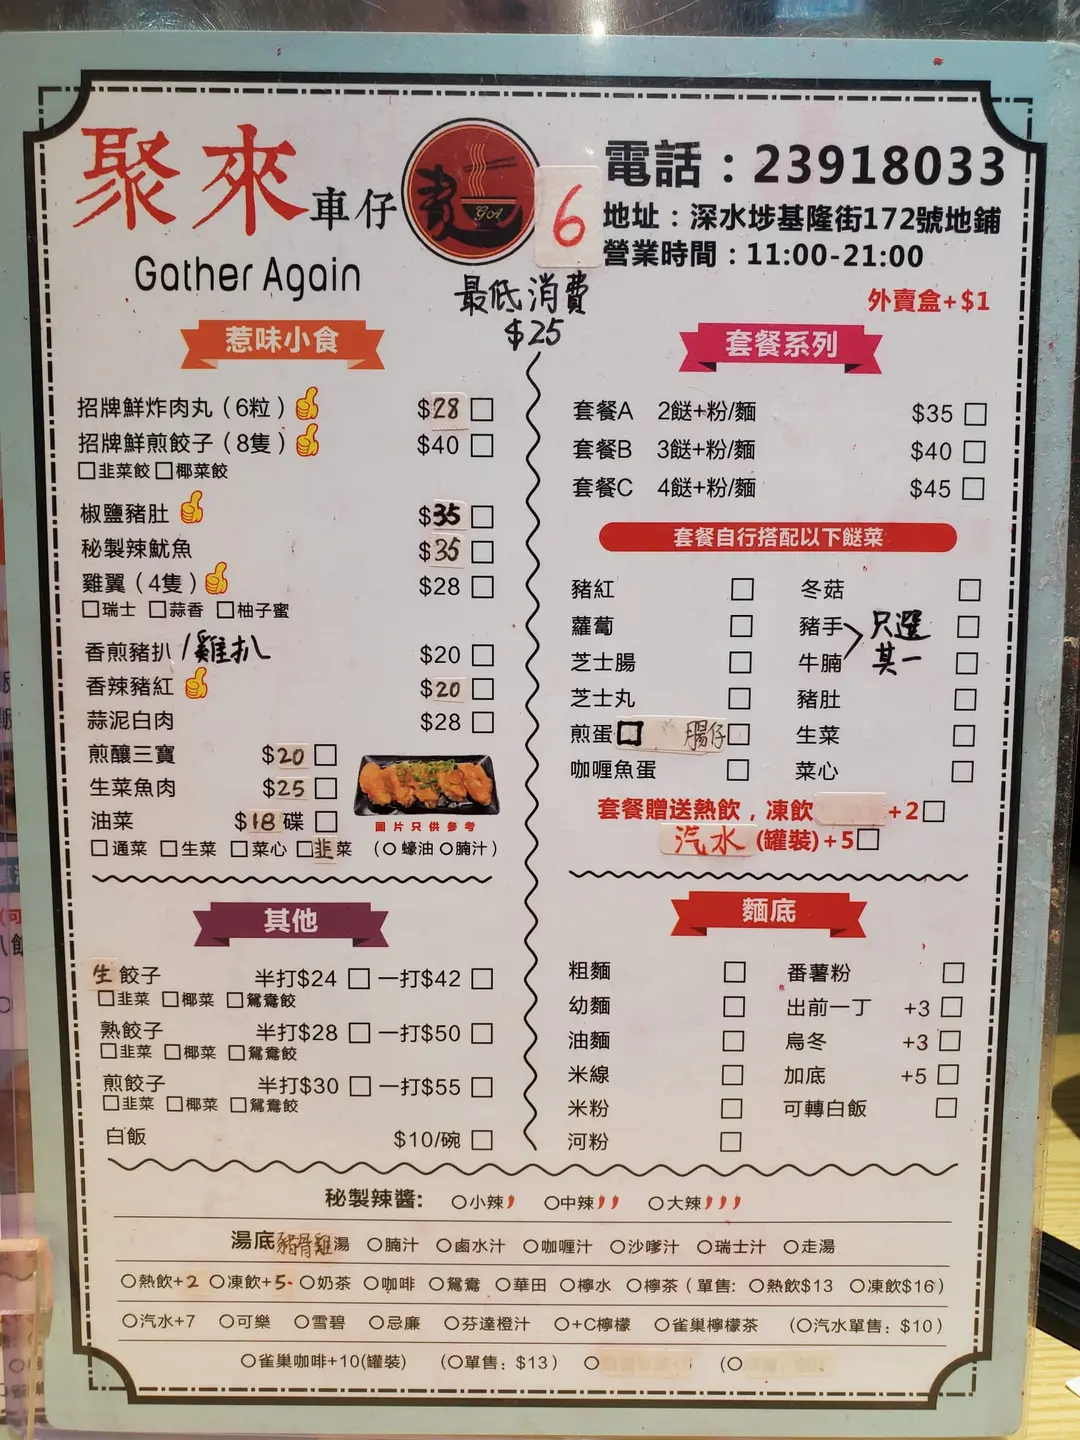 聚來車仔麵
GOA
Gather Again
6
電話：23918033
地址：深水埗基隆街172號地鋪
營業時間：11:00-21:00
最低消費
$25
外賣盒+$1
惹味小食
招牌鮮炸肉丸（6粒） $28 □
招牌鮮煎餃子（8隻） $40 □
□韭菜餃 □椰菜餃
椒鹽豬肚 $35 □
秘製辣魷魚 $35 □
雞翼（4隻） $28 □
□瑞士 □蒜香 □柚子蜜
香煎豬扒 /雞扒 $20 □
香辣豬紅 $20 □
蒜泥白肉 $28 □
煎釀三寶 $20 □
生菜魚肉 $25 □
油菜 $18碟 □
圖片只供參考
□通菜 □生菜 □菜心 □韭菜 （○蠔油 ○腩汁）
其他
生餃子 半打$24 □ 一打$42 □
□韭菜 □椰菜 □鴛鴦餃
熟餃子 半打$28 □ 一打$50 □
□韭菜 □椰菜 □鴛鴦餃
煎餃子 半打$30 □ 一打$55 □
□韭菜 □椰菜 □鴛鴦餃
白飯 $10/碗 □
套餐系列
套餐A 2餸+粉/麵 $35 □
套餐B 3餸+粉/麵 $40 □
套餐C 4餸+粉/麵 $45 □
套餐自行搭配以下餸菜
豬紅 □ 冬菇 □
蘿蔔 □ 豬手 □
只選
其一
芝士腸 □ 牛腩 □
芝士丸 □ 豬肚 □
煎蛋 □ 腸仔 □ 生菜 □
咖喱魚蛋 □ 菜心 □
套餐贈送熱飲，凍飲 +2□
汽水 (罐裝)+5□
麵底
粗麵 □ 番薯粉 □
幼麵 □ 出前一丁 +3 □
油麵 □ 烏冬 +3 □
米線 □ 加底 +5 □
米粉 □ 可轉白飯 □
河粉 □
秘製辣醬: ○小辣 ○中辣 ○大辣
湯底 豬骨雞湯 ○腩汁 ○鹵水汁 ○咖喱汁 ○沙嗲汁 ○瑞士汁 ○走湯
○熱飲+2 ○凍飲+5 ○奶茶 ○咖啡 ○鴛鴦 ○華田 ○檸水 ○檸茶（單售: ○熱飲$13 ○凍飲$16）
○汽水+7 ○可樂 ○雪碧 ○忌廉 ○芬達橙汁 ○+C檸檬 ○雀巢檸檬茶 （○汽水單售：$10）
○雀巢咖啡+10(罐裝) （○單售：$13） ○ （○